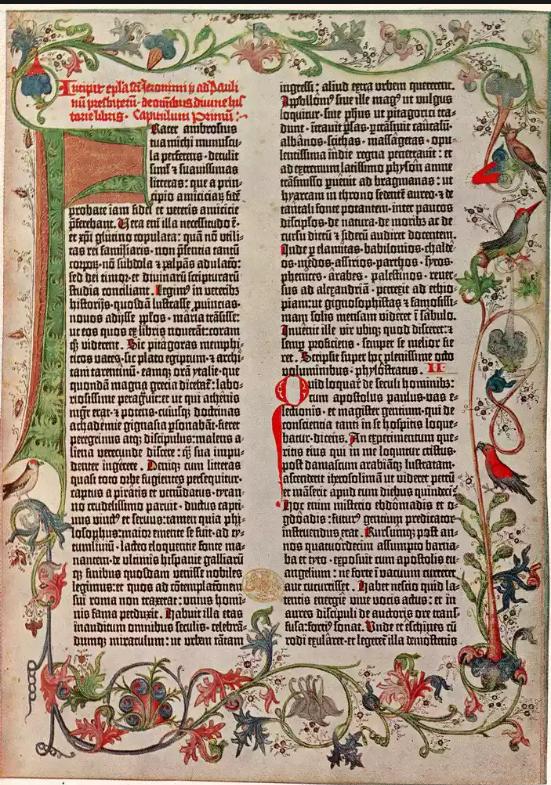 Incipit epl̃a sc̃ti Jeronimi p̃ ad Pauli
nũ presbiterũ · de om̃ibus diuine his
torie libris · Capitulum primũ ·
Frater ambrosius
tua michi munuscu
la perferens · detulit
sim̃l ⁊ suauissimas
litteras: que a prin-
cipio amiciciaꝝ fidẽ
probate iam fidei et veteris amicicie
p̃ferebant. Vera enĩ illa necessitudo ẽ ·
et xp̃i glutino copulata: quã nõ vtili-
tas rei familiaris · non p̃sentia tantũ
corpoꝝ · nõ subdola ⁊ palpãs adulatõ:
sed dei timor · et diuinaꝝ scripturaꝝ
studia conciliant. Legim9 in veterib9
historijs · quosdã lustrasse ꝓuincias ·
nouos adijsse pp̃los · maria trãsisse:
ut eos quos ex libris nouerãt: coram
q̃ȝ viderent. Sic pitagoras memphi-
ticos vates · sic plato egiptum · ⁊ archi
tam tarentinũ · eamq̃ȝ orã ytalie · que
quondã magna grecia dicebat᷑: labo-
riosissime peragrauit: et ut qui athenis
mgr̃ erat · ⁊ potens · cuiusq̃ȝ doctrinas
achademie gignasia p̃sonabãt: fieret
peregrinus atq̃ȝ discipulus: malens a-
liena verecunde discere: q̃ȝ sua impu-
denter ingerere. Deniq̃ȝ cum litteras
quasi toto orbe fugientes persequitur:
captus a piratis et venundatus · tyran-
no crudelissimo paruit · ductus capti-
uus vinct9 et seruus: tamen quia phi-
losophus: maior emente se fuit · ad ty-
tumliuiũ · lacteo eloquentie fonte ma-
nantem · de vltimis hispanie galliaꝝq̃ȝ
finibus quosdam venisse nobiles
legimus: et quos ad cõtemplacionem
sui roma non traxerat: vnius homi-
nis fama perduxit. Habuit illa etas
inauditum omnibus seculis · celebrã-
dumq̃ȝ miraculum: ut vrbem tãtam
ingressi: aliud extra vrbem quererent.
Appolloni9 siue ille mag9 ut vulgus
loquitur · siue ph̃us ut pitagorici tra-
dunt · intrauit p̃sas · p̃trãsiuit caucasũ ·
albanos · scithas · massagetas · opu-
lentissima indie regna penetrauit: et
ad extremum latissimo physon amne
trãsmisso ꝑuenit ad bragmanas: ut
hyarcam in throno sedentẽ aureo · ⁊ de
tantali fonte potantem · inter paucos
discipl̃os · de natura · de moribus ac de
cursu dierũ ⁊ siderũ audiret docentem.
Inde ꝑ elamitas · babilonios · chalde-
os · medos · assirios · parthos · syros ·
phenices · arabes · palestinos · reuer-
sus ad alexandriã · perrexit ad ethio-
piam: ut gignosophistas ⁊ famosissi-
mam solis mensam videret ĩ sabulo.
Inuenit ille vir vbiq̃ȝ quod disceret: ⁊
semper proficiens · semper se melior fie-
ret. Scripsit super hoc plenissime octo
voluminibus · phylostratus. II
Quid loquar de seculi hominibus:
cum apostolus paulus · vas e-
lectionis · et magister gentium · qui de
consciencia tanti in se hospitis loque-
batur · dicens. An experimentum que-
ritis eius qui in me loquitur cristus ·
post damascum arabiãq̃ȝ lustratam ·
ascenderit iherosolimã ut videret petrũ
et mãserit apud eum diebus quindeci ·
Hoc enim misterio ebdomadis et o-
gdoadis: futur9 gentium predicator
instruendus erat. Rursumq̃ȝ post an-
nos quatuordecim assumpto barna-
ba et tyto · exposuit cum apostolis eu-
angelium: ne forte ĩ vacuum curreret
aut cucurrisset. Habet nescio quid la-
tentis energie viue vocis actus: et in
aures discipuli de auctoris ore trans-
fusa: forti9 sonat. Vnde et eschines cũ
rodi exularet · et legeret᷑ illa demostenis